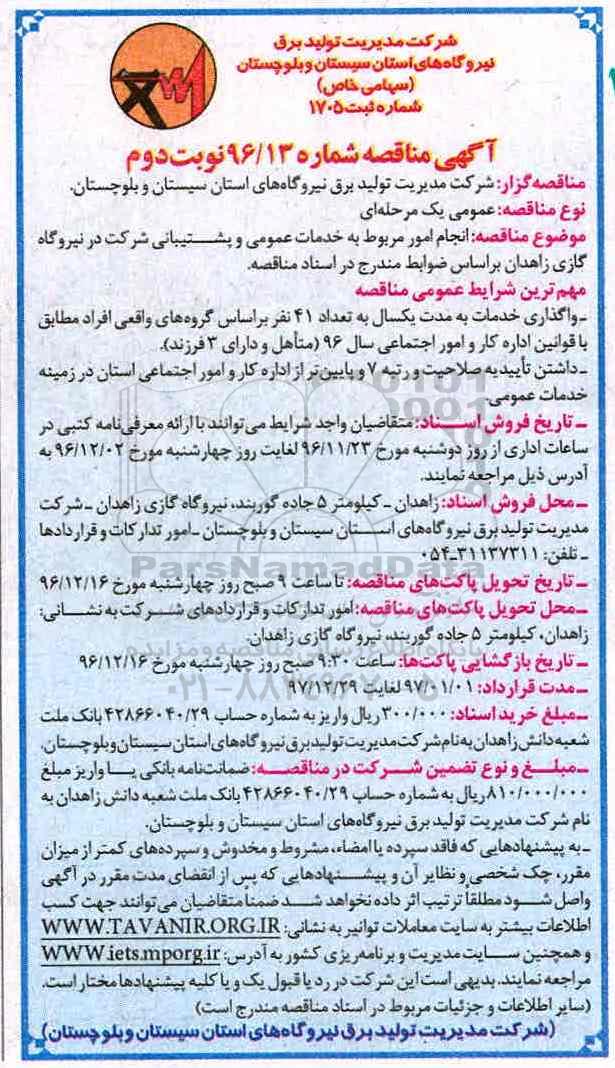 شرکت مدیریت تولید برق
نیروگاه‌های استان سیستان و بلوچستان
(سهامی خاص)
شماره ثبت ۱۷۰۵
آگهی مناقصه شماره ۹۶/۱۳ نوبت دوم
مناقصه‌گزار: شرکت مدیریت تولید برق نیروگاه‌های استان سیستان و بلوچستان.
نوع مناقصه: عمومی یک مرحله‌ای
موضوع مناقصه: انجام امور مربوط به خدمات عمومی و پشتیبانی شرکت در نیروگاه
گازی زاهدان براساس ضوابط مندرج در اسناد مناقصه.
مهم‌ترین شرایط عمومی مناقصه
ـ واگذاری خدمات به مدت یکسال به تعداد ۴۱ نفر براساس گروه‌های واقعی افراد مطابق
با قوانین اداره کار و امور اجتماعی سال ۹۶ (متأهل و دارای ۳ فرزند).
ـ داشتن تأییدیه صلاحیت و رتبه ۷ و پایین‌تر از اداره کار و امور اجتماعی استان در زمینه
خدمات عمومی.
ـ تاریخ فروش اسناد: متقاضیان واجد شرایط می‌توانند با ارائه معرفی‌نامه کتبی در
ساعات اداری از روز دوشنبه مورخ ۹۶/۱۱/۲۳ لغایت روز چهارشنبه مورخ ۹۶/۱۲/۰۲ به
آدرس ذیل مراجعه نمایند.
ـ محل فروش اسناد: زاهدان ـ کیلومتر ۵ جاده گوربند، نیروگاه گازی زاهدان ـ شرکت
مدیریت تولید برق نیروگاه‌های استان سیستان و بلوچستان ـ امور تدارکات و قراردادها
ـ تلفن: ۳۱۱۳۷۳۱۱-۰۵۴
ـ تاریخ تحویل پاکت‌های مناقصه: تا ساعت ۹ صبح روز چهارشنبه مورخ ۹۶/۱۲/۱۶
ـ محل تحویل پاکت‌های مناقصه: امور تدارکات و قراردادهای شرکت به نشانی:
زاهدان، کیلومتر ۵ جاده گوربند، نیروگاه گازی زاهدان.
ـ تاریخ بازگشایی پاکت‌ها: ساعت ۹:۳۰ صبح روز چهارشنبه مورخ ۹۶/۱۲/۱۶
ـ مدت قرارداد: ۹۷/۰۱/۰۱ لغایت ۹۷/۱۲/۲۹
ـ مبلغ خرید اسناد: ۳۰۰/۰۰۰ ریال واریز به شماره حساب ۴۲۸۶۶۰۴۰/۲۹ بانک ملت
شعبه دانش زاهدان به نام شرکت مدیریت تولید برق نیروگاه‌های استان سیستان و بلوچستان.
ـ مبلغ و نوع تضمین شرکت در مناقصه: ضمانت‌نامه بانکی یا واریز مبلغ
۸۱۰/۰۰۰/۰۰۰ ریال به شماره حساب ۴۲۸۶۶۰۴۰/۲۹ بانک ملت شعبه دانش زاهدان به
نام شرکت مدیریت تولید برق نیروگاه‌های استان سیستان و بلوچستان.
ـ به پیشنهادهایی که فاقد سپرده یا امضاء، مشروط و مخدوش و سپرده‌های کمتر از میزان
مقرر، چک شخصی و نظایر آن و پیشنهادهایی که پس از انقضای مدت مقرر در آگهی
واصل شود مطلقاً ترتیب اثر داده نخواهد شد ضمناً متقاضیان می‌توانند جهت کسب
اطلاعات بیشتر به سایت معاملات توانیر به نشانی: WWW.TAVANIR.ORG.IR
و همچنین سایت مدیریت و برنامه‌ریزی کشور به آدرس: WWW.iets.mporg.ir
مراجعه نمایند. بدیهی است این شرکت در رد یا قبول یک و یا کلیه پیشنهادها مختار است.
(سایر اطلاعات و جزئیات مربوط در اسناد مناقصه مندرج است)
(شرکت مدیریت تولید برق نیروگاه‌های استان سیستان و بلوچستان)
ParsNamadData